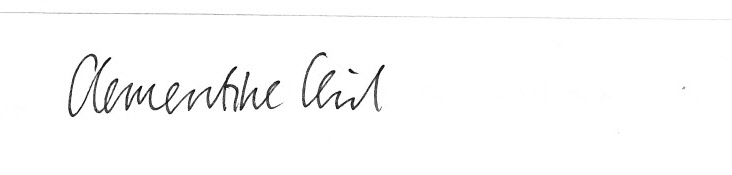 Clementine Cecil